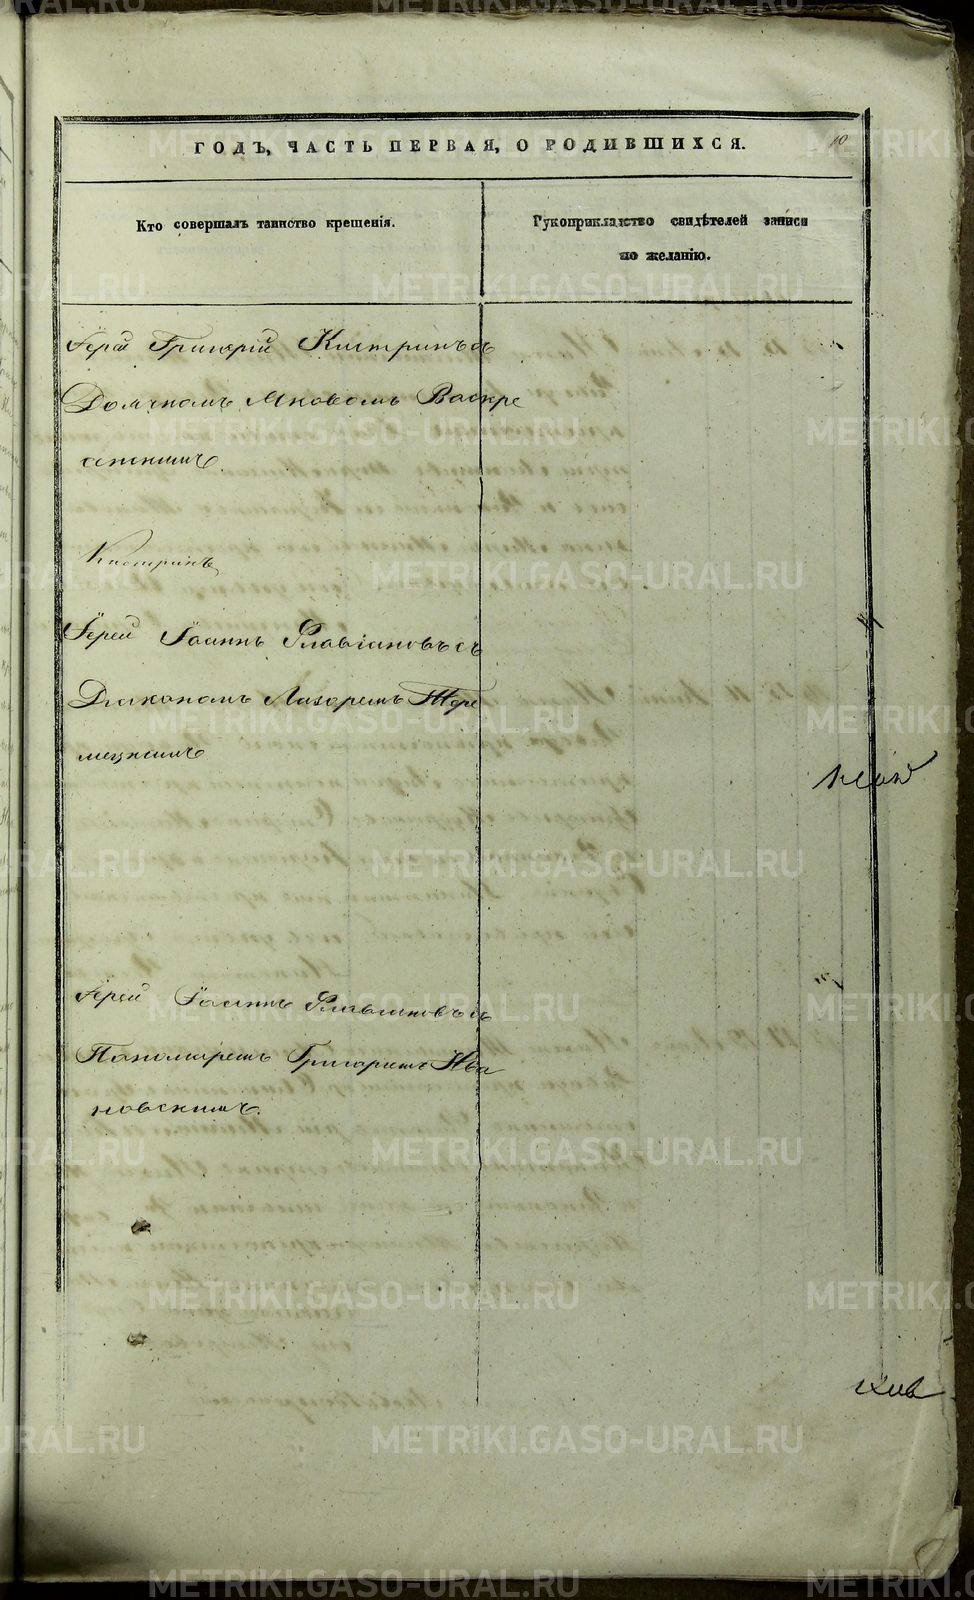 ГОДЪ, ЧАСТЬ ПЕРВАЯ, О РОДИВШИХСЯ.
10
Кто совершалъ таинство крещенія.
Рукоприкладство свидѣтелей записи
по желанію.
Іерей Григорій Кистринъ съ
Дьячкомъ Яковомъ Воскре
сенскимъ.
Кистринъ
Іерей Іоаннъ Флавіановъ съ
Диакономъ Лазоремъ
Іерей Іоаннъ Флавіановъ съ
Пономаремъ Григориемъ Ива
новскимъ.
METRIKI.GASO-URAL.RU